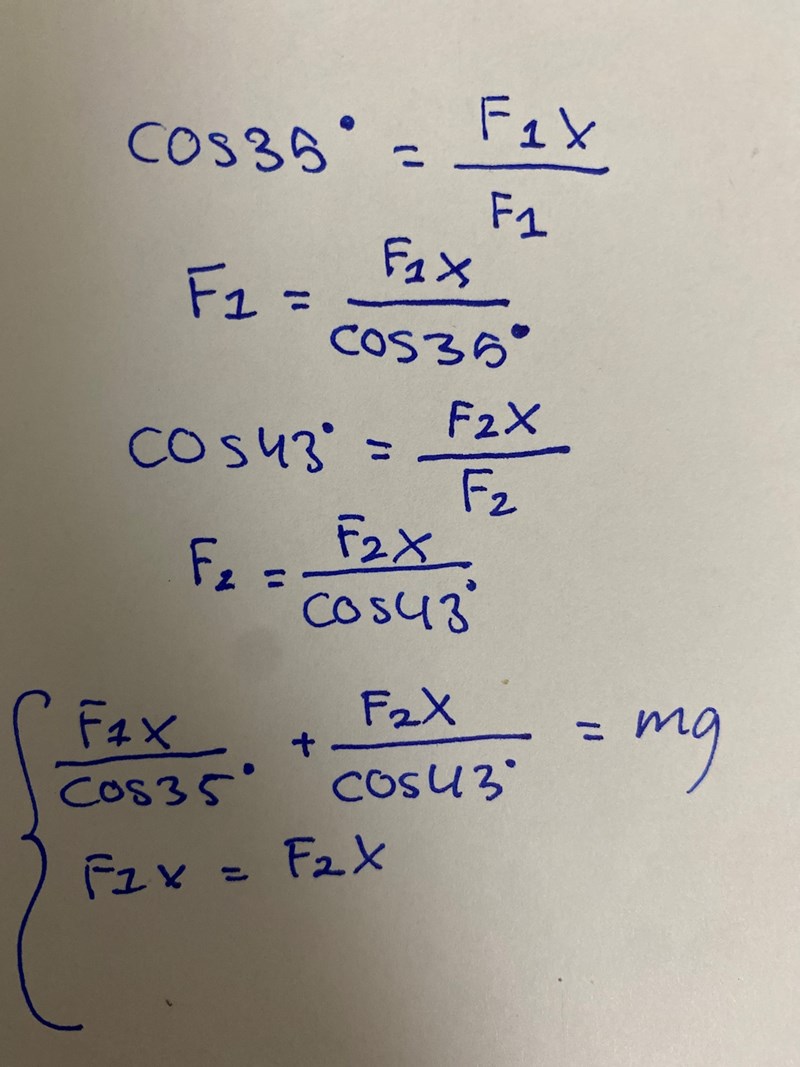 cos35° = F1x / F1
F1 = F1x / cos35°
cos43° = F2x / F2
F2 = F2x / cos43°
{ F1x / cos35° + F2x / cos43° = mg
F1x = F2x